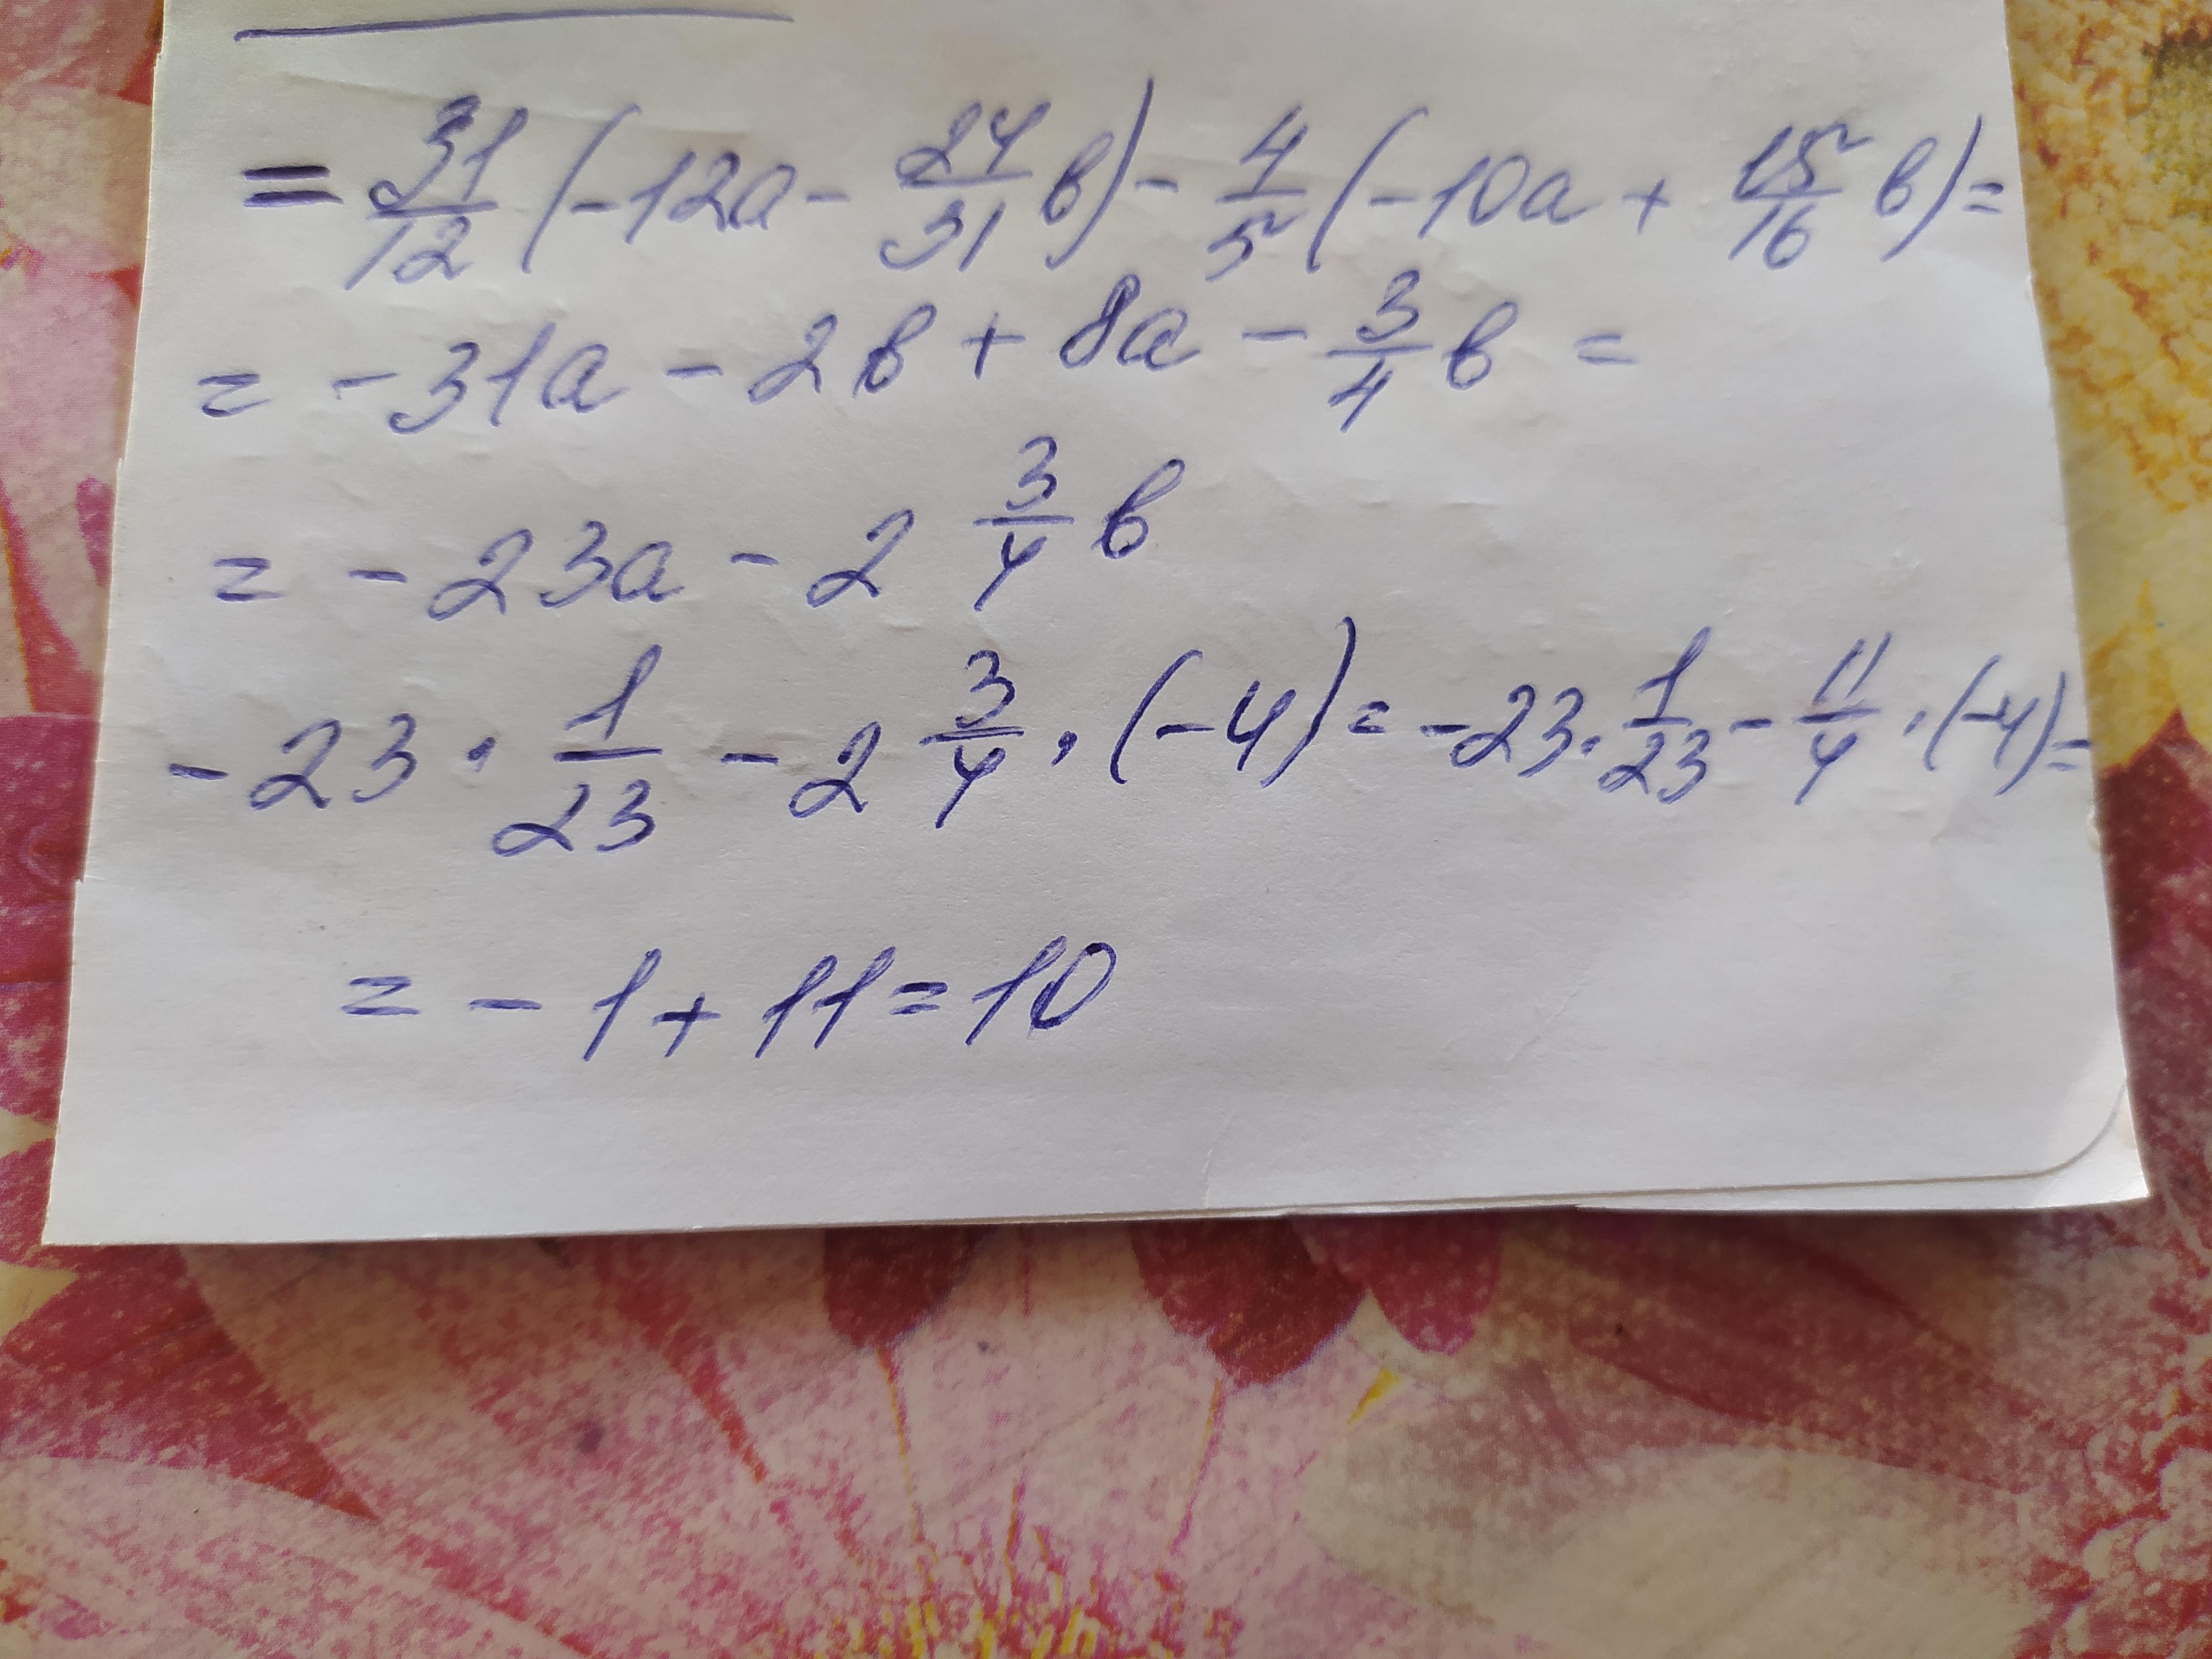 = 31/12 (-12a - 24/31 в) - 4/5 (-10a + 15/16 в) =
= -31a - 2в + 8a - 3/4 в =
= -23a - 2 3/4 в
-23 · 1/23 - 2 3/4 · (-4) = -23 · 1/23 - 11/4 · (-4) =
= -1 + 11 = 10